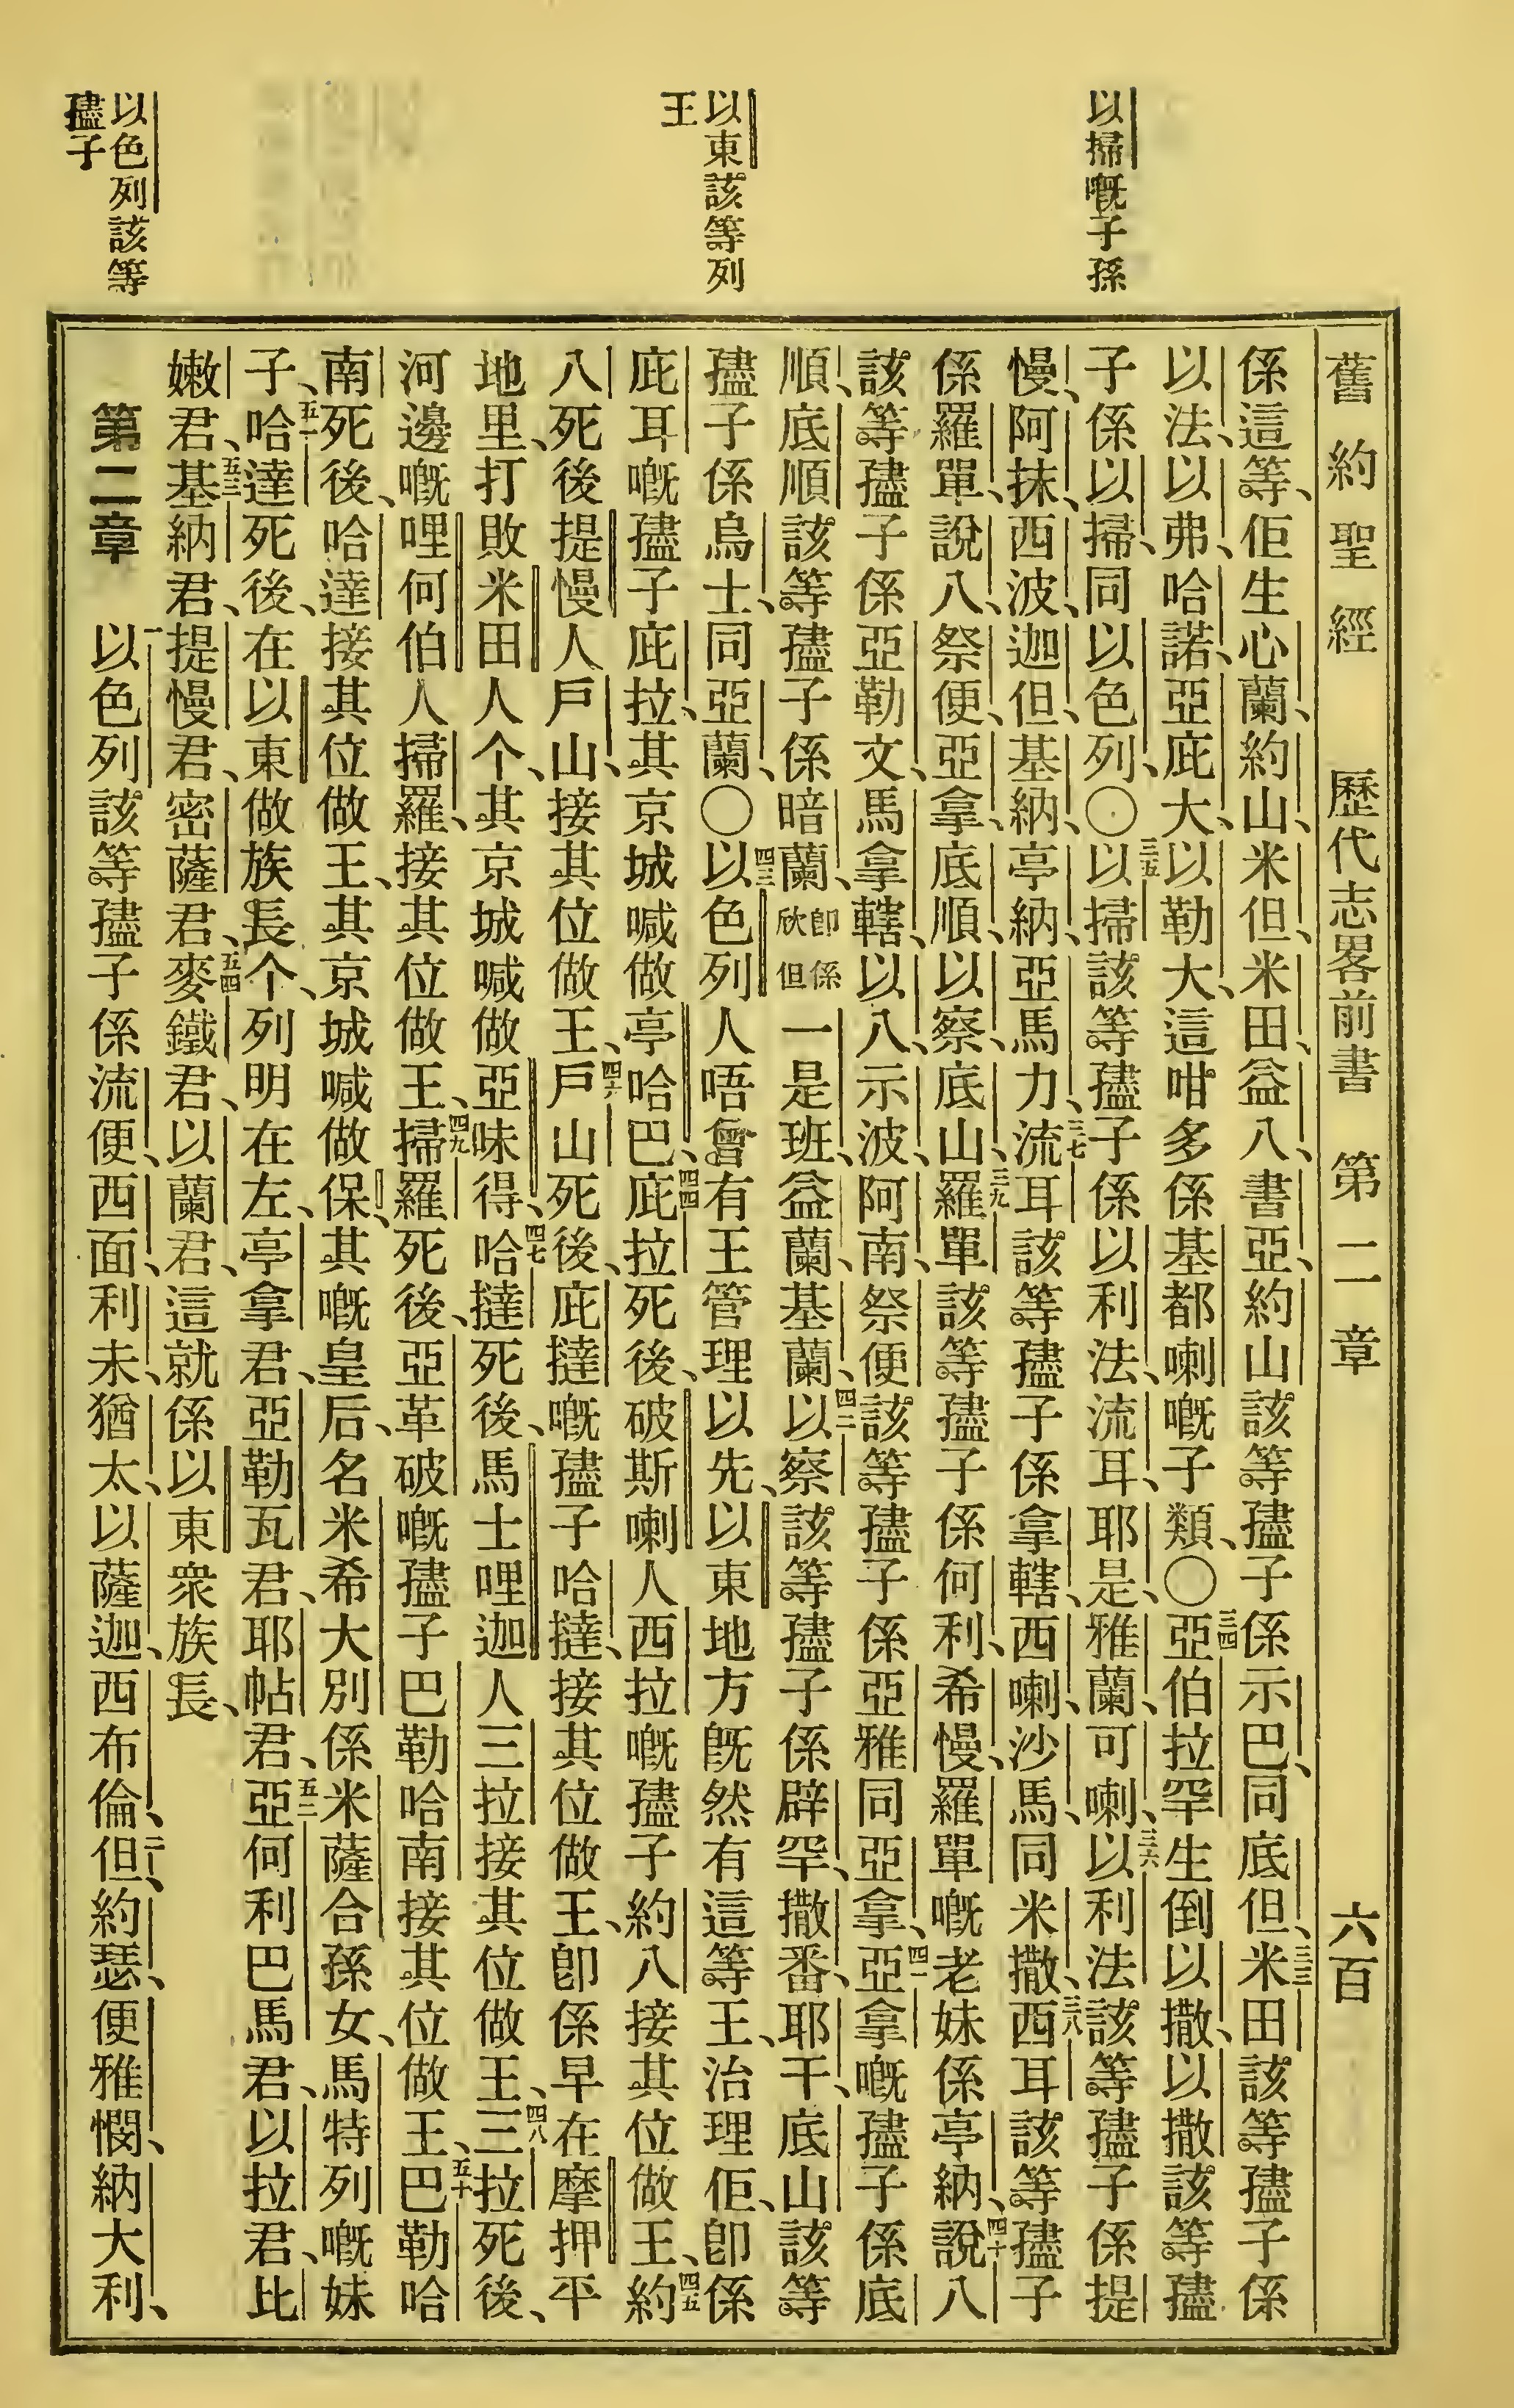 舊約聖經 歷代志畧前書 第二章 六百
以掃嘅子孫
以東該等列
王
以色列該等
𡥧子
係這等、佢生心蘭、約山、米但、米田、益八、書亞、約山該等𡥧子係示巴、同底但、三三米田該等𡥧子係
以法、以弗、哈諾、亞庇大、以勒大、這咁多係基都喇嘅子類、〇三四亞伯拉罕生倒以撒、以撒該等𡥧
子係以掃、同以色列、〇三五以掃該等𡥧子係以利法、流耳、耶是、雅蘭、可喇、三六以利法該等𡥧子係提
慢、阿抹、西波、迦但、基納、亭納、亞馬力、三七流耳該等𡥧子係拿轄、西喇、沙馬、同米撒、三八西耳該等𡥧子
係羅單、說八、祭便、亞拿、底順、以察、底山、三九羅單該等𡥧子係何利、希慢、羅單嘅老妹係亭納、四十說八
該等𡥧子係亞勒文、馬拿轄、以八、示波、阿南、祭便該等𡥧子係亞雅同亞拿、四一亞拿嘅𡥧子係底
順、底順該等𡥧子係暗蘭、卽係欣但一是班、益蘭、基蘭、四二以察該等𡥧子係辟罕、撒番、耶干、底山該等
𡥧子係烏士、同亞蘭、〇四三以色列人唔曾有王管理以先、以東地方旣然有這等王、治理佢、卽係
庇耳嘅𡥧子庇拉、其京城喊做亭哈巴、四四庇拉死後、破斯喇人西拉嘅𡥧子約八接其位做王、四五約
八死後提慢人戶山、接其位做王、四六戶山死後、庇撻嘅𡥧子哈撻、接其位做王、卽係早在摩押平
地里、打敗米田人个、其京城喊做亞味得、四七哈撻死後、馬士哩迦人三拉接其位做王、四八三拉死後、
河邊嘅哩何伯人掃羅、接其位做王、四九掃羅死後、亞革破嘅𡥧子巴勒哈南接其位做王、五十巴勒哈
南死後、哈達接其位做王、其京城喊做保、其嘅皇后、名米希大別係米薩合孫女、馬特列嘅妹
子、五一哈達死後、在以東做族長个、列明在左、亭拿君、亞勒瓦君、耶帖君、五二亞何利巴馬君、以拉君、比
嫩君、五三基納君、提慢君、密薩君、五四麥鐵君、以蘭君、這就係以東衆族長、
第二章 一以色列該等𡥧子係流便、西面、利未、猶太、以薩迦、西布倫、二但、約瑟、便雅憫、納大利、